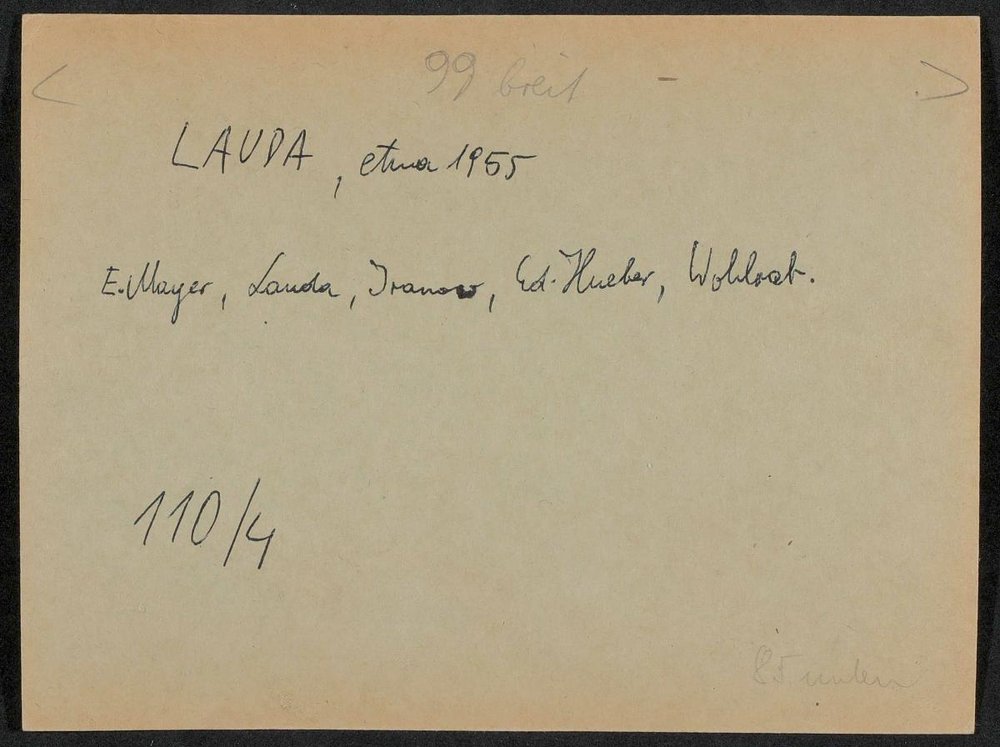 99 breit -
LAUDA, etwa 1955
E. Mayer, Lauda, Iranow, Ed. Hueber, Wohlrab.
110/4
85 unten